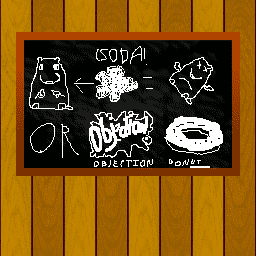 SODA!
OR
Objection!
OBJECTION
DONUT